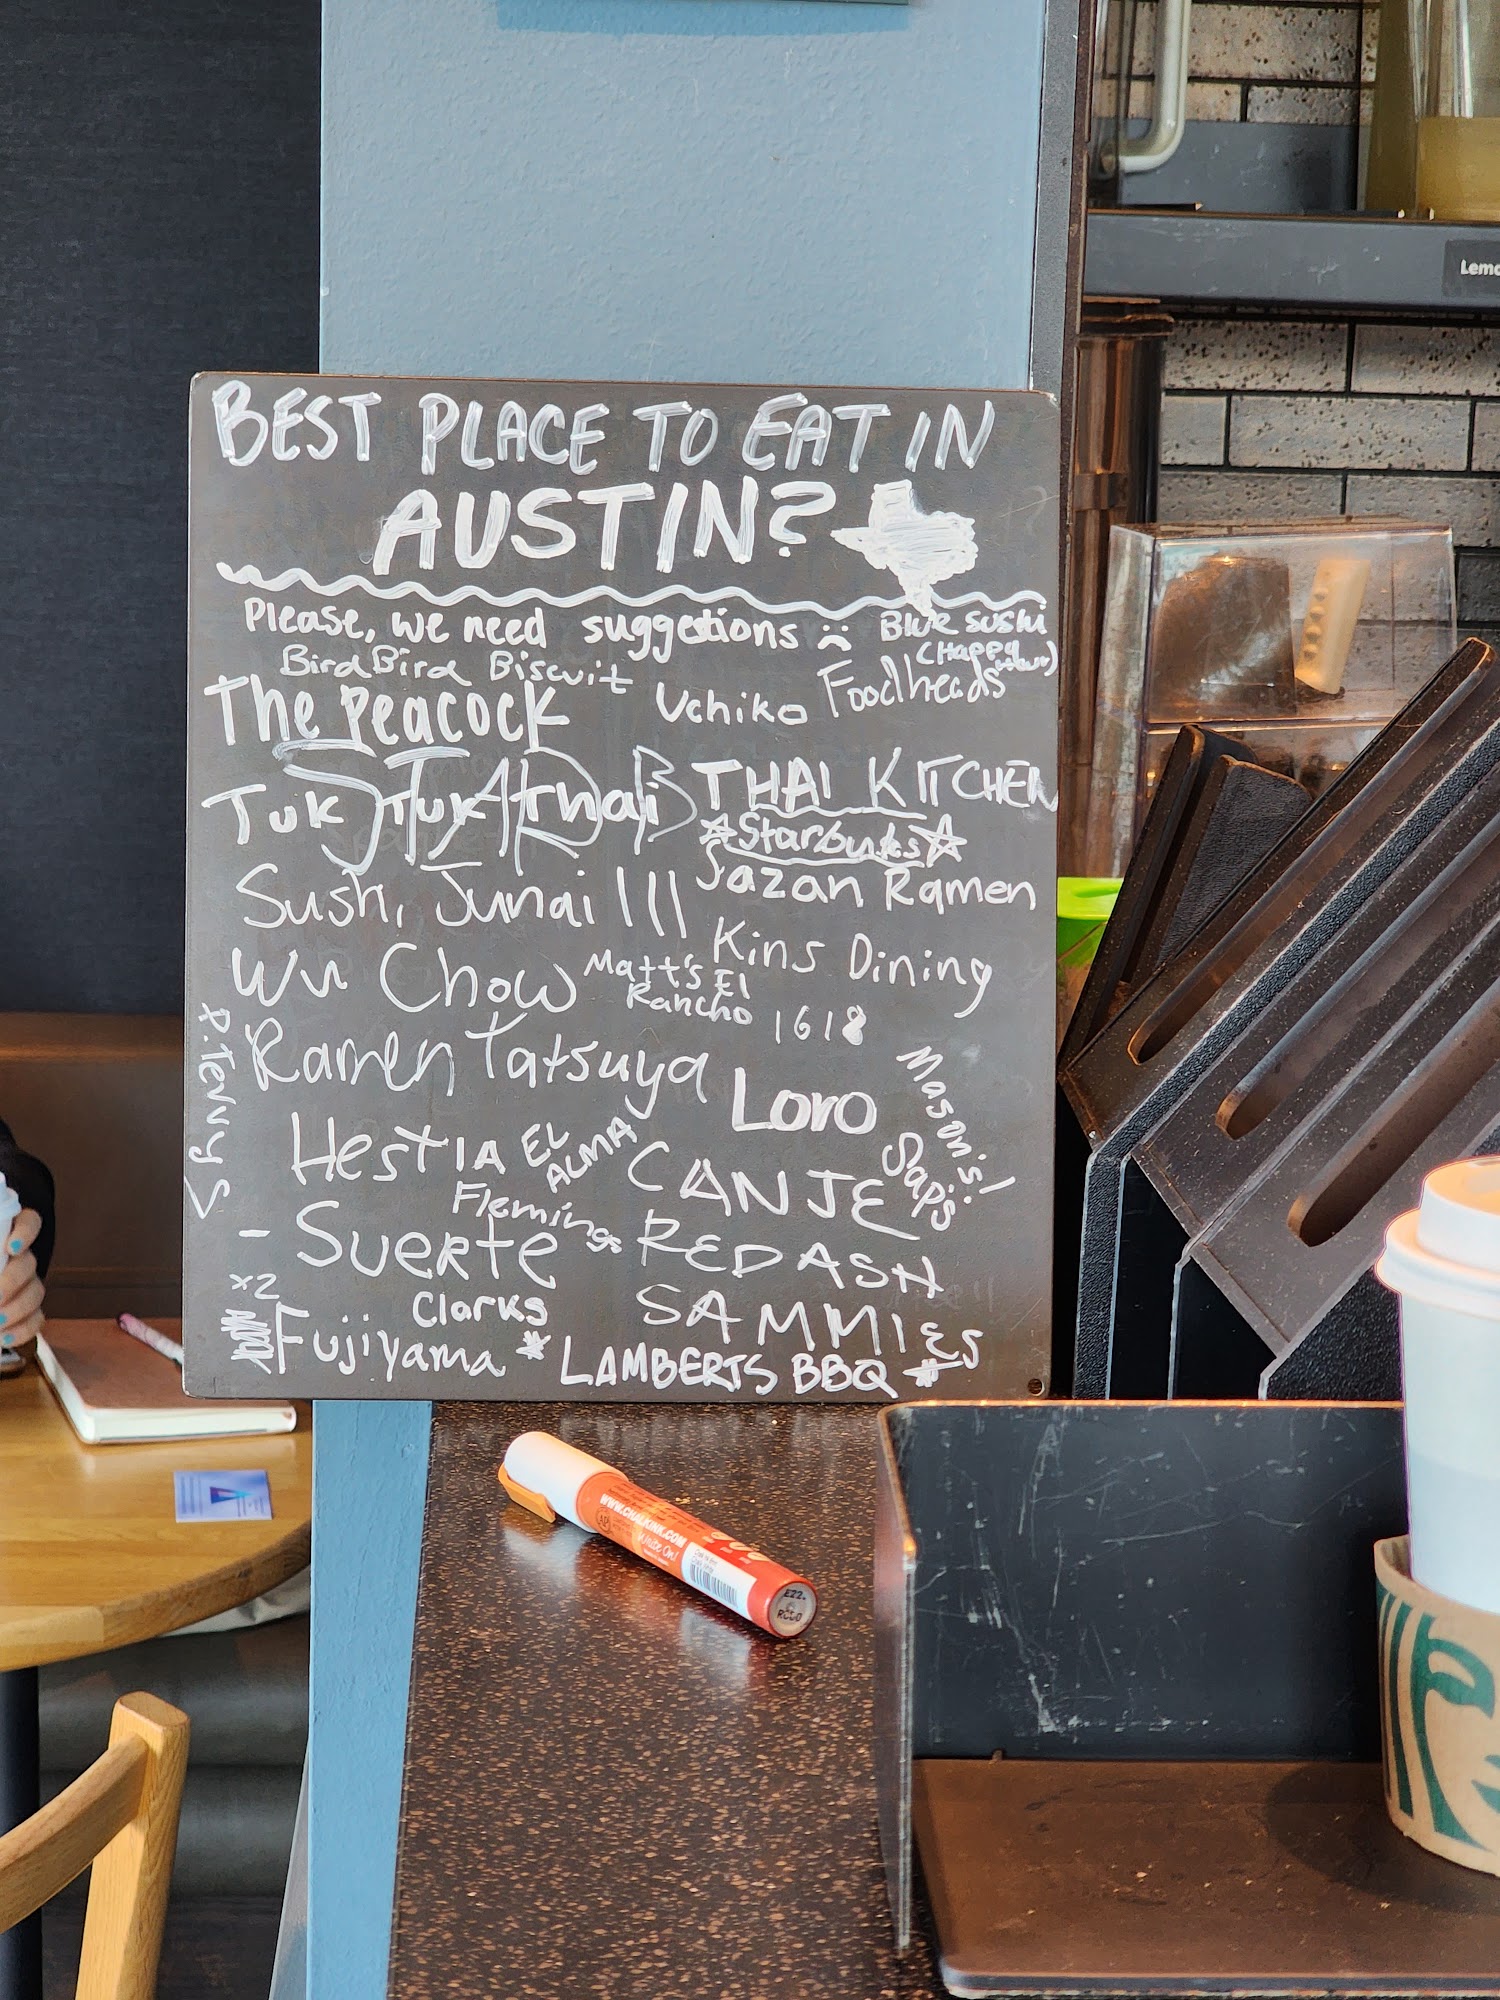 BEST PLACE TO EAT IN
AUSTIN?
Please, we need suggestions
Blue sushi
(Happy Hour)
Bird Bird Biscuit
The Peacock
Uchiko
Foodheads
Tuk Tuk Thai
STARDB
THAI KITCHEN
Starbucks
Sushi Junai |||
Jazan Ramen
Wu Chow
Matt's El
Rancho
Kins Dining
1618
P. Terry's
Ramen Tatsuya
Loro
Mason's!
Sap's
Hestia
EL
ALMA
CANJE
Flemings
- Suerte
RED ASH
x2
Clarks
SAMMIES
Fujiyama *
LAMBERTS BBQ
Lemo
WWW.CHALKINK.COM
Write On!
E22.